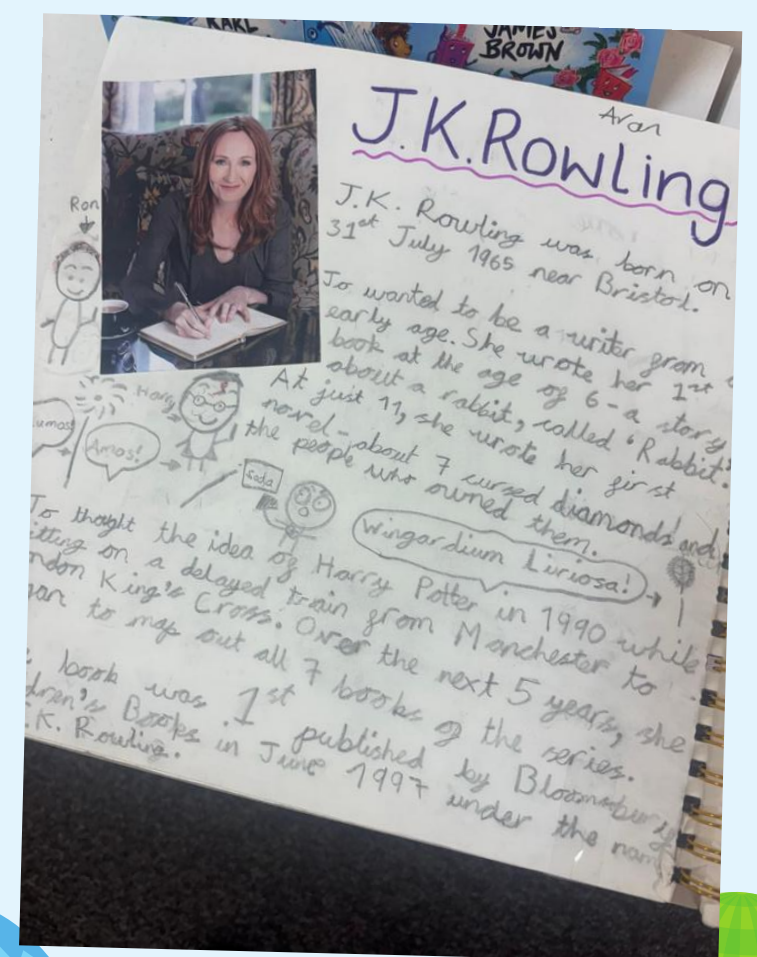 KARL
JAMES
BROWN
Aran
J.K.Rowling
J.K. Rowling was born on
31st July 1965 near Bristol.
Ron
Jo wanted to be a writer from
early age. She wrote her 1st
book at the age of 6 - a story
about a rabbit, called 'Rabbit'.
At just 11, she wrote her first
novel - about 7 cursed diamonds and
the people who owned them.
Harry
umos!
Amos!
Soda
Wingardium Liriosa!
Jo thought the idea of Harry Potter in 1990 while
itting on a delayed train from Manchester to
ndon King's Cross. Over the next 5 years, she
gan to map out all 7 books of the series.
book was 1st published by Bloomsbury
dren's Books in June 1997 under the nam
.K. Rowling.